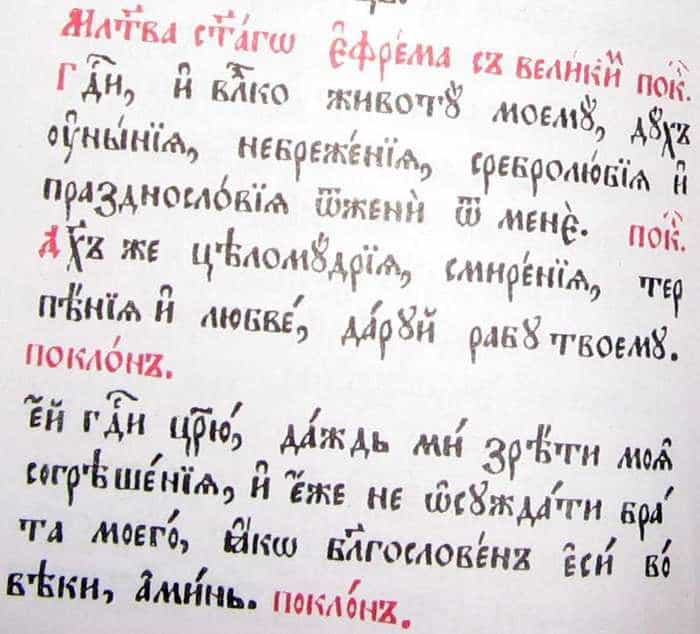 Мл҃тва ст҃а́гѡ є҆фре́ма съ вели́ки́м пок̾.
Гдⷭ҇и, и҆ влⷣко животꙋ̀ моемꙋ̀, дꙋ́хъ
оу҆ны́нїѧ, небреже́нїѧ, сребролю́бїѧ и҆
праздносло́вїѧ ѿженѝ ѿ менє̀. пок̾.
Дх҃ъ же цѣломꙋ́дрїѧ, смире́нїѧ, тер
пѣ́нїѧ и҆ любве́, да́рꙋй рабꙋ̀ твоемꙋ.
покло́нъ.
є҆́й гдⷭ҇и цр҃ю́, да́ждь ми́ зрѣ́ти моѧ҆
согрѣше́нїѧ, и҆ є҆́же не ѡ҆сꙋжда́ти бра́
та моего́, ꙗ҆́кѡ бл҃гослове́нъ є҆си́ во́
вѣ́ки, а҆ми́нь. покло́нъ.